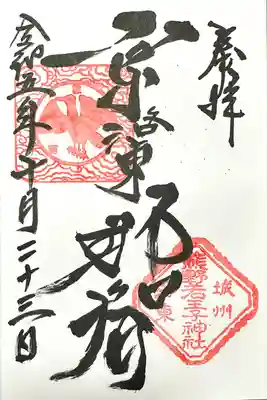 奉拝
京洛東
城州
熊野若王子神社
東
令和五年十月二十三日